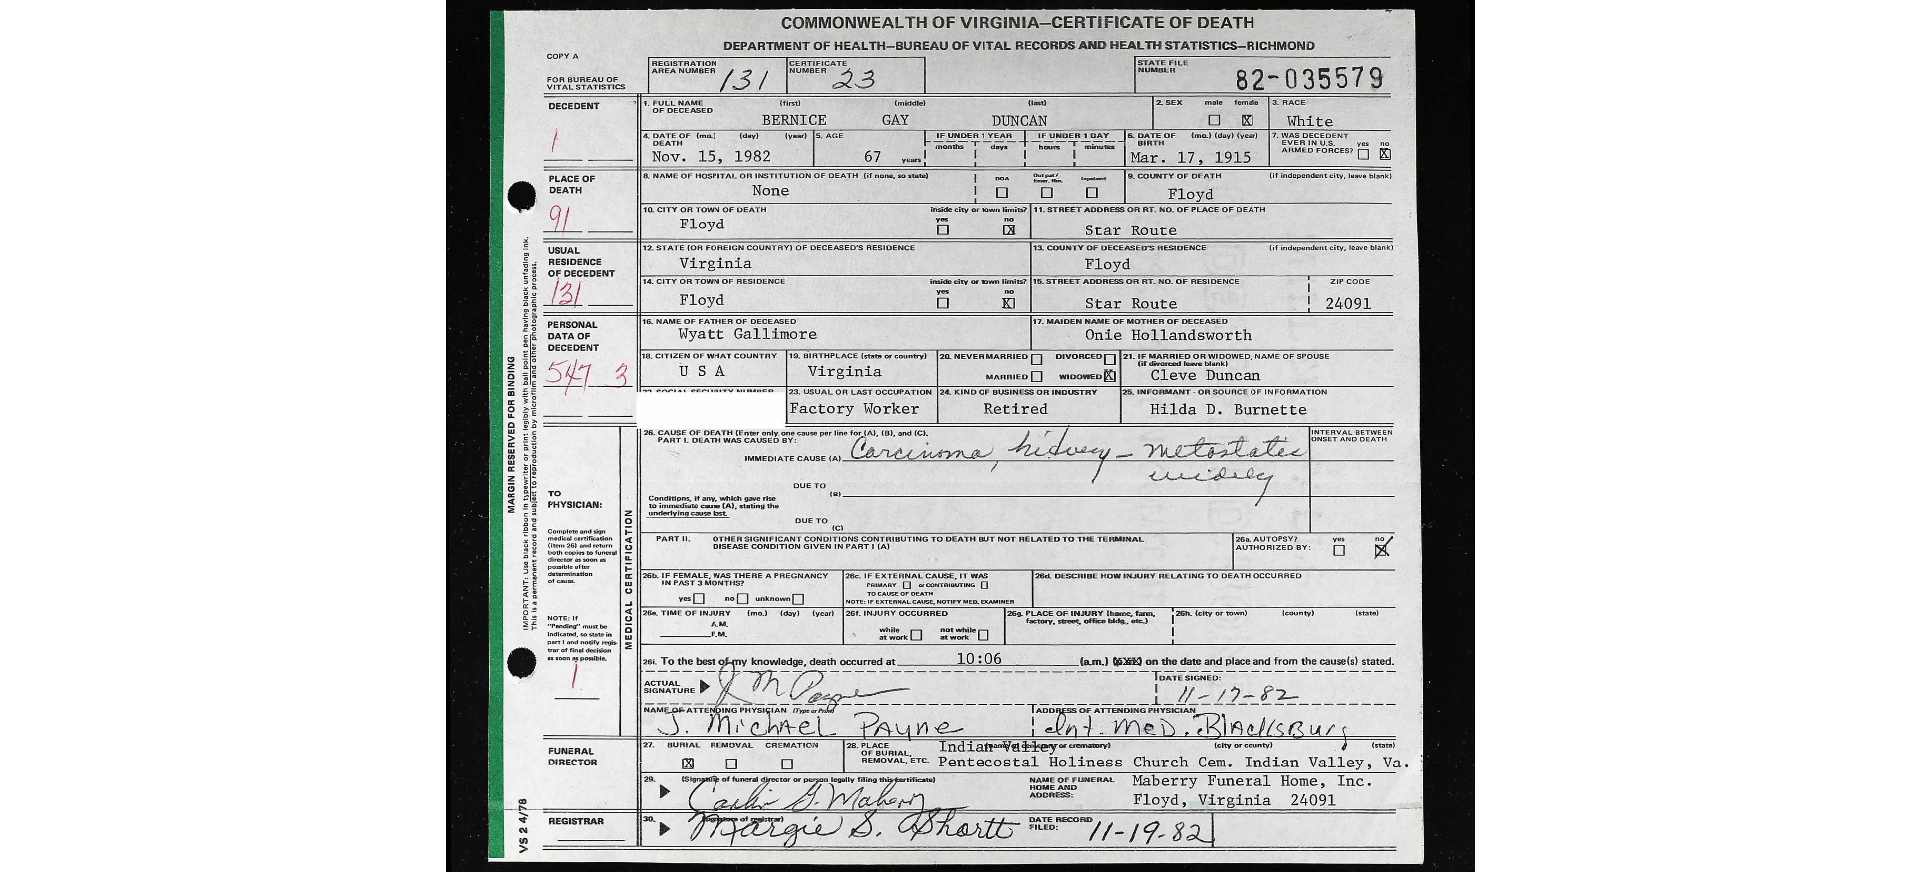 COMMONWEALTH OF VIRGINIA—CERTIFICATE OF DEATH
DEPARTMENT OF HEALTH—BUREAU OF VITAL RECORDS AND HEALTH STATISTICS—RICHMOND
COPY A
FOR BUREAU OF VITAL STATISTICS
REGISTRATION AREA NUMBER 131
CERTIFICATE NUMBER 23
STATE FILE NUMBER 82-035579
DECEDENT
1
1. FULL NAME OF DECEASED (first) (middle) (last)
BERNICE GAY DUNCAN
2. SEX male female X
3. RACE
White
4. DATE OF DEATH (mo.) (day) (year)
Nov. 15, 1982
5. AGE
67 years
IF UNDER 1 YEAR
months days
IF UNDER 1 DAY
hours minutes
6. DATE OF BIRTH (mo.) (day) (year)
Mar. 17, 1915
7. WAS DECEDENT EVER IN U.S. ARMED FORCES? yes no X
PLACE OF DEATH
91
8. NAME OF HOSPITAL OR INSTITUTION OF DEATH (if none, so state)
None
DOA Out pat/ Emer. Rm. Inpatient
9. COUNTY OF DEATH (if independent city, leave blank)
Floyd
10. CITY OR TOWN OF DEATH inside city or town limits? yes no X
Floyd
11. STREET ADDRESS OR RT. NO. OF PLACE OF DEATH
Star Route
USUAL RESIDENCE OF DECEDENT
131
12. STATE (OR FOREIGN COUNTRY) OF DECEASED'S RESIDENCE
Virginia
13. COUNTY OF DECEASED'S RESIDENCE (if independent city, leave blank)
Floyd
14. CITY OR TOWN OF RESIDENCE inside city or town limits? yes no X
Floyd
15. STREET ADDRESS OR RT. NO. OF RESIDENCE
Star Route
ZIP CODE
24091
PERSONAL DATA OF DECEDENT
547 3
16. NAME OF FATHER OF DECEASED
Wyatt Gallimore
17. MAIDEN NAME OF MOTHER OF DECEASED
Onie Hollandsworth
18. CITIZEN OF WHAT COUNTRY
U S A
19. BIRTHPLACE (state or country)
Virginia
20. NEVER MARRIED DIVORCED
MARRIED WIDOWED X
21. IF MARRIED OR WIDOWED, NAME OF SPOUSE
(if divorced leave blank)
Cleve Duncan
23. USUAL OR LAST OCCUPATION
Factory Worker
24. KIND OF BUSINESS OR INDUSTRY
Retired
25. INFORMANT - OR SOURCE OF INFORMATION
Hilda D. Burnette
MARGIN RESERVED FOR BINDING
IMPORTANT: Use black ribbon in typewriter or print legibly with ball point pen having black unfading ink.
This is a permanent record and subject to reproduction by microfilm and other photographic process.
TO PHYSICIAN:
Complete and sign
medical certification
(item 26) and return
both copies to funeral
director as soon as
possible after
determination
of cause.
NOTE: If
"Pending" must be
indicated, so state in
part I and notify regis-
trar of final decision
as soon as possible.
1
MEDICAL CERTIFICATION
26. CAUSE OF DEATH (Enter only one cause per line for (A), (B), and (C).
PART I. DEATH WAS CAUSED BY:
IMMEDIATE CAUSE (A) Carcinoma, kidney - metastatic
widely
INTERVAL BETWEEN ONSET AND DEATH
DUE TO (B)
Conditions, if any, which gave rise
to immediate cause (A), stating the
underlying cause last.
DUE TO (C)
PART II. OTHER SIGNIFICANT CONDITIONS CONTRIBUTING TO DEATH BUT NOT RELATED TO THE TERMINAL
DISEASE CONDITION GIVEN IN PART I (A)
26a. AUTOPSY? AUTHORIZED BY: yes no X
26b. IF FEMALE, WAS THERE A PREGNANCY
IN PAST 3 MONTHS?
yes no unknown
26c. IF EXTERNAL CAUSE, IT WAS
PRIMARY or CONTRIBUTING
TO CAUSE OF DEATH
NOTE: IF EXTERNAL CAUSE, NOTIFY MED. EXAMINER
26d. DESCRIBE HOW INJURY RELATING TO DEATH OCCURRED
26e. TIME OF INJURY (mo.) (day) (year)
A.M.
P.M.
26f. INJURY OCCURRED
while at work not while at work
26g. PLACE OF INJURY (home, farm,
factory, street, office bldg., etc.)
26h. (city or town) (county) (state)
26i. To the best of my knowledge, death occurred at 10:06 (a.m.) on the date and place and from the cause(s) stated.
ACTUAL SIGNATURE J M Payne
DATE SIGNED:
11-17-82
NAME OF ATTENDING PHYSICIAN (Type or Print)
J. Michael Payne
ADDRESS OF ATTENDING PHYSICIAN
Int. Med. Blacksburg
FUNERAL DIRECTOR
27. BURIAL REMOVAL CREMATION
X
28. PLACE OF BURIAL, REMOVAL, ETC. (name of cemetery or crematory) (city or county) (state)
Indian Valley
Pentecostal Holiness Church Cem. Indian Valley, Va.
29. (Signature of funeral director or person legally filing this certificate)
NAME OF FUNERAL HOME AND ADDRESS:
Maberry Funeral Home, Inc.
Floyd, Virginia 24091
REGISTRAR
30. (Signature of registrar)
Margie S. Shortt
DATE RECORD FILED: 11-19-82
VS 2 4/78